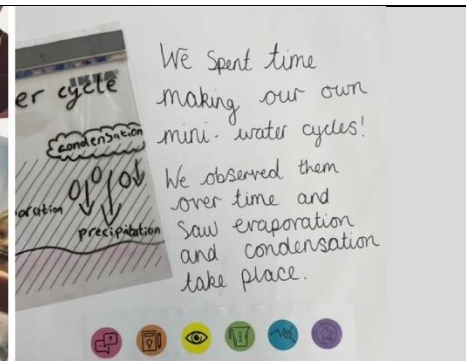 er cycle
condensation
oration
precipitation
We Spent time
making our own
mini-water cycles!
We observed them
over time and
saw evaporation
and condensation
take place.